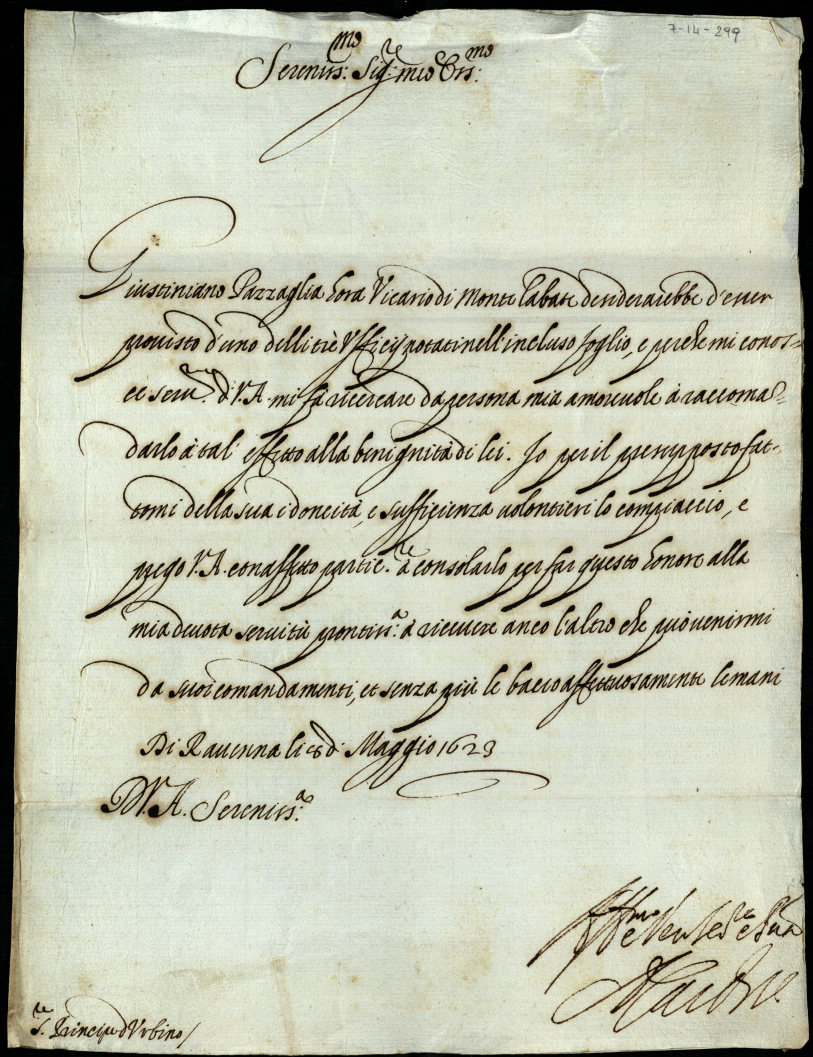 7-14-299
Sereniss:mo Sig:re mio Oss:mo
Giustiniano Pazzaglia hora Vicario di Monte l'abate desiderarebbe d'esser
provisto d'uno delli trè Ufficij notati nell'incluso foglio, e perche mi conos=
ce serv.re d'V.A. mi fà ricercare da persona mia amorevole à raccoman=
darlo à tal' effetto alla benignità di lei. Io per il presupposto fat=
tomi della sua idoneità, e sufficienza volontieri lo compiaccio, e
prego V.A. con affetto partic.re à consolarlo per far questo honore alla
mia devota servitù prontiss:a à ricevere anco l'altro che può venirmi
da suoi comandamenti, et senza più le bacio affettuosamente le mani
Di Ravenna li 8 di Maggio 1623
D V.A. Sereniss:a
S.re Principe d'Urbino /